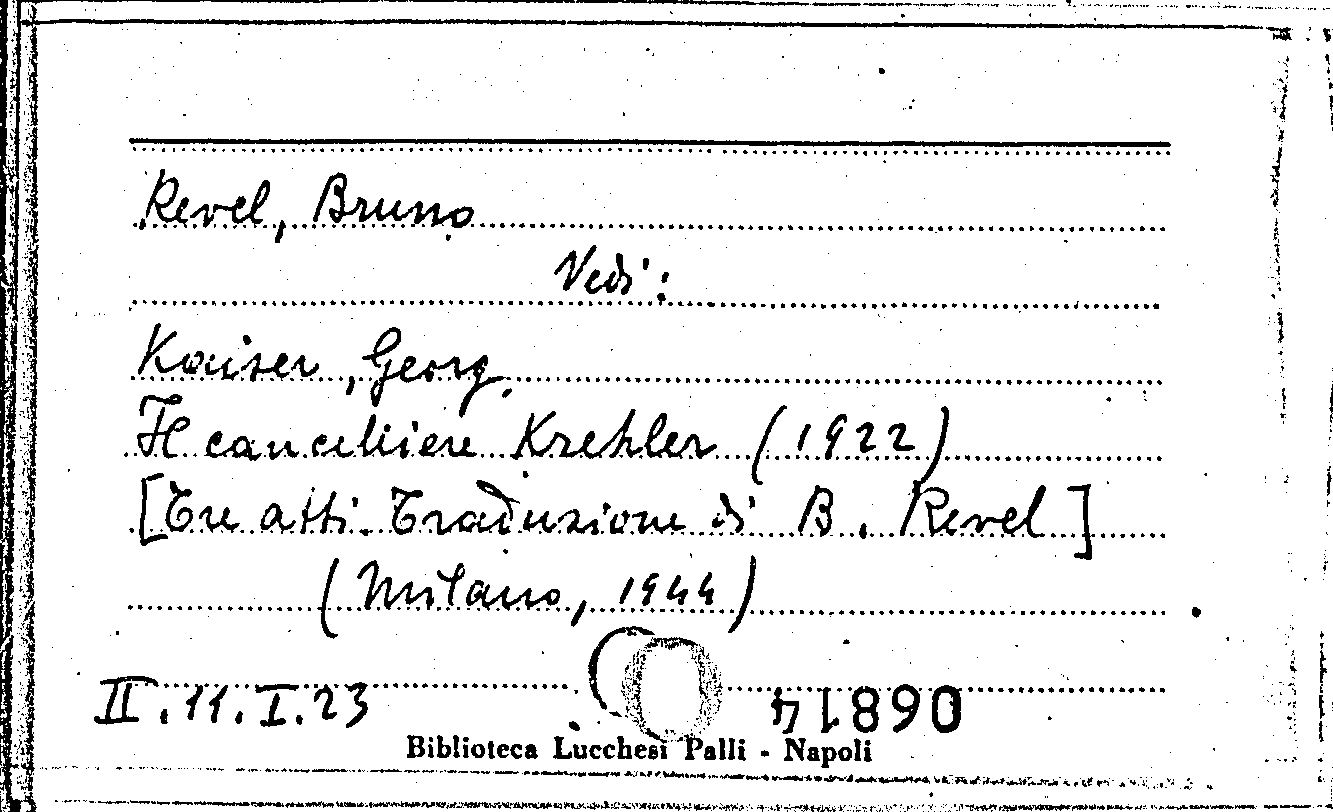 Revel, Bruno
Vedi:
Kaiser, Georg.
Il cancelliere Krehler (1922)
[Tre atti. Traduzione di B. Revel]
(Milano, 1944)
II.11.I.23
06814
Biblioteca Lucchesi Palli - Napoli